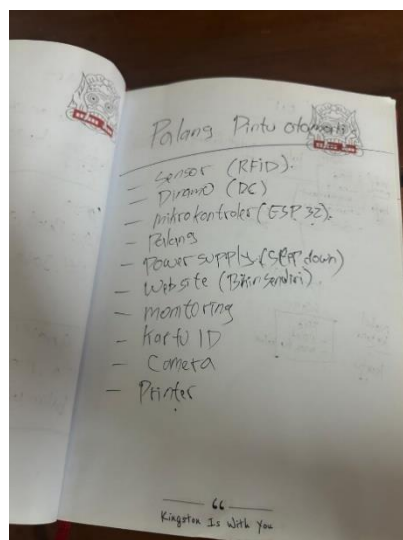 Palang Pintu otomatis
- Sensor (RFiD).
- Dinamo (DC)
- mikrokontroler (ESP 32).
- Palang
- Power supply (step down)
- Website (Bikin sendiri)
- monitoring
- Kartu ID
- Camera
- Printer
Kingston Is With You